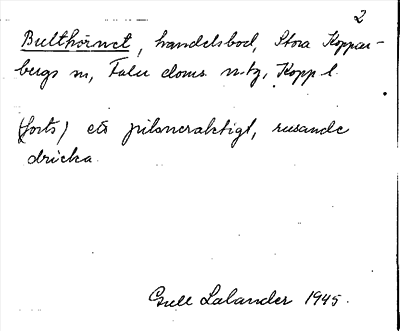 2
Bulthörnet, handelsbod, Stora Koppar-
bergs sn, Falu doms. ntg, Kopp. l.
(forts) ett pilsneraktigt, rusande
dricka.
Gull Lalander 1945.